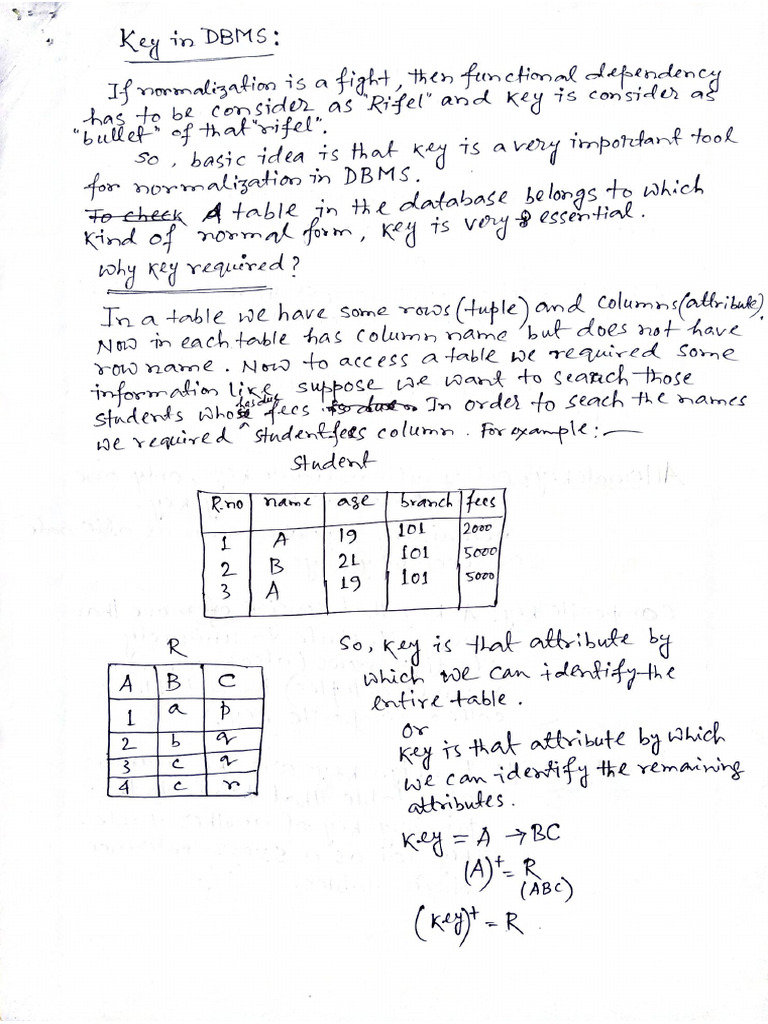 Key in DBMS:
If normalization is a fight, then functional dependency
has to be consider as "Rifel" and key is consider as
"bullet" of that "rifel".
so, basic idea is that key is a very important tool
for normalization in DBMS.
To check A table in the database belongs to which
kind of normal form, key is very essential.
why key required?
In a table we have some rows(tuple) and columns(attribute).
Now in each table has column name but does not have
row name. Now to access a table we required some
information like, suppose we want to search those
students whose has due fees In order to seach the names
we required student fees column. For example:—
Student
R.no name age branch fees
1 A 19 101 2000
2 B 21 101 5000
3 A 19 101 5000
R
A B C
1 a p
2 b q
3 c q
4 c r
So, key is that attribute by
which we can identify the
entire table.
or
key is that attribute by which
we can identify the remaining
attributes.
key = A → BC
(A)+ = R
(ABC)
(key)+ = R